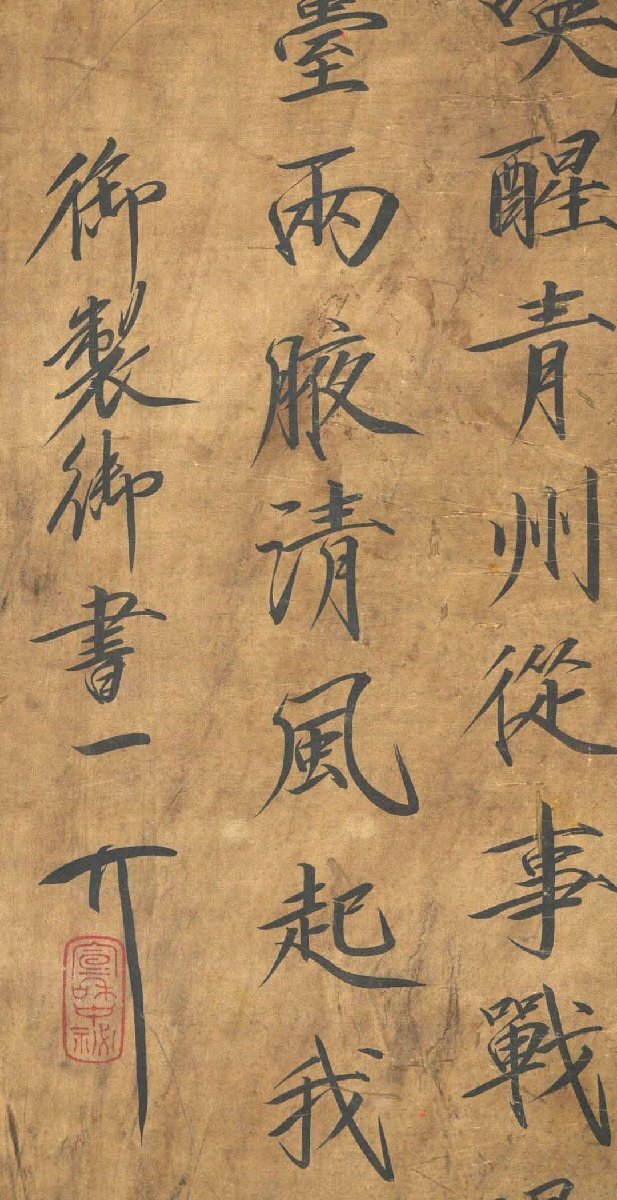 喚醒青州從事戰
臺兩腋清風起我
御製御書一
宣和中秘